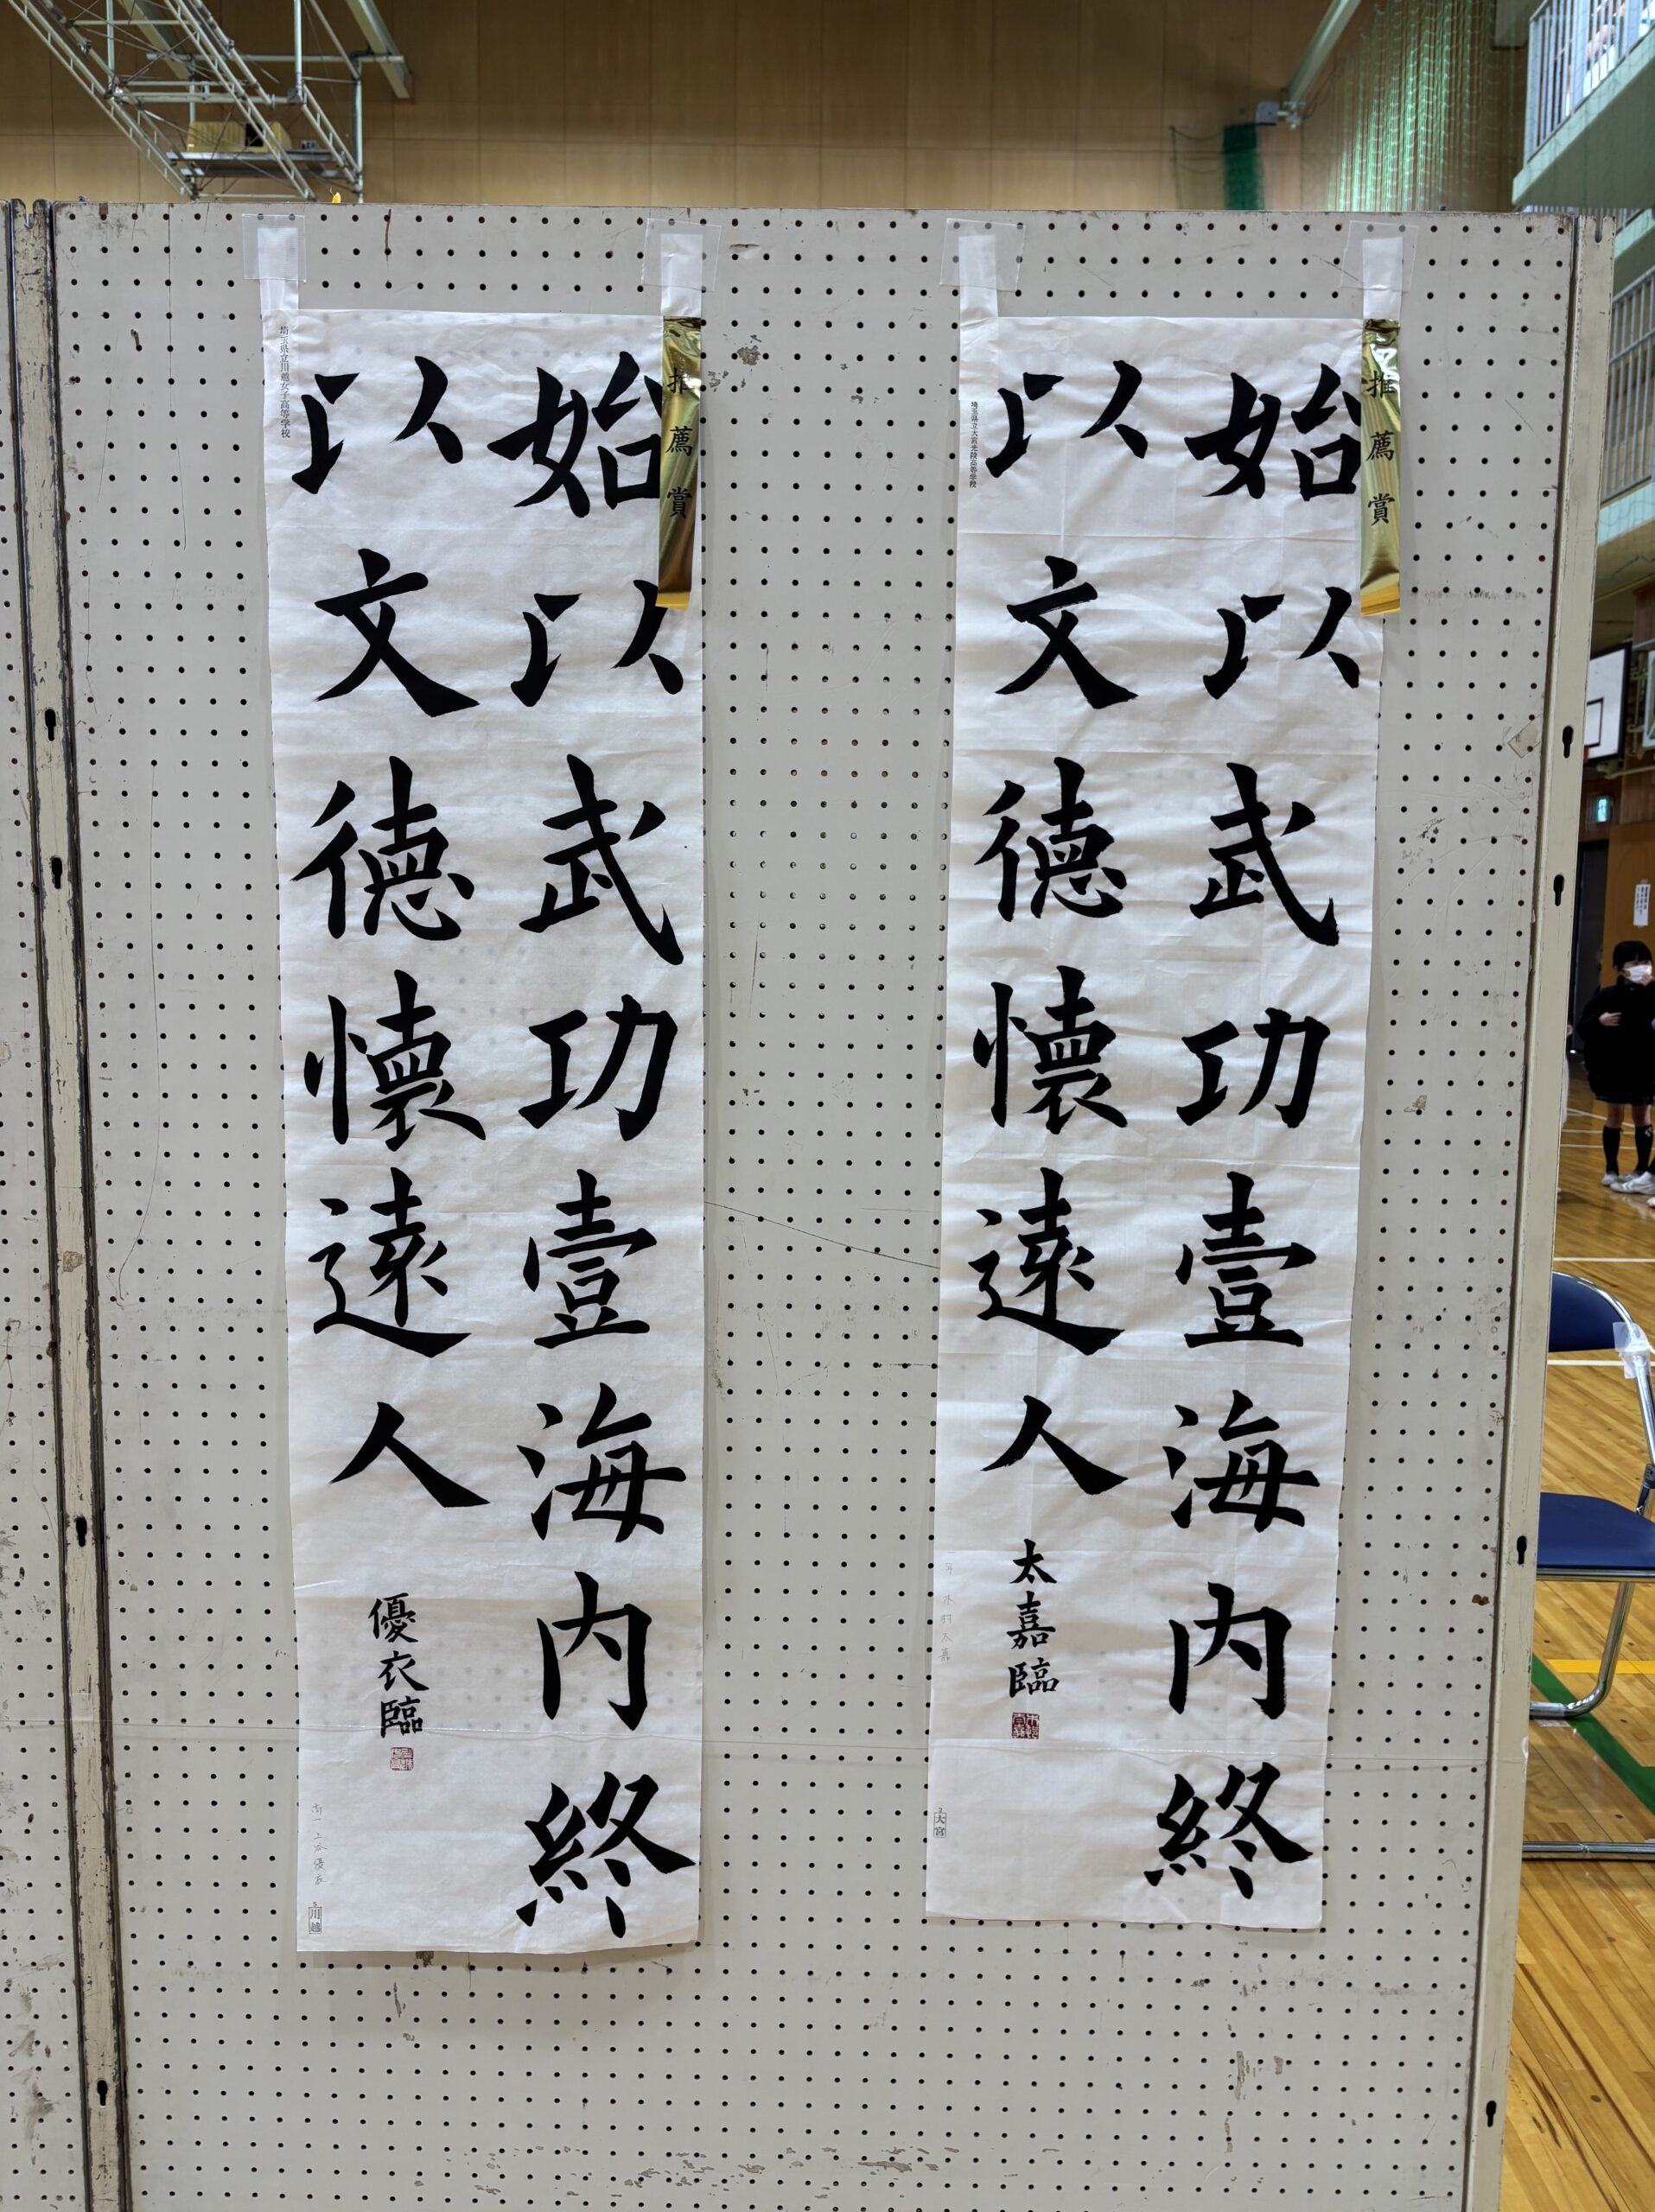 推薦賞
始以武功壹海内終
以文德懷遠人
太嘉臨
埼玉県立大宮光陵高等学校
大宮
推薦賞
始以武功壹海内終
以文德懷遠人
優衣臨
埼玉県立川越女子高等学校
川越